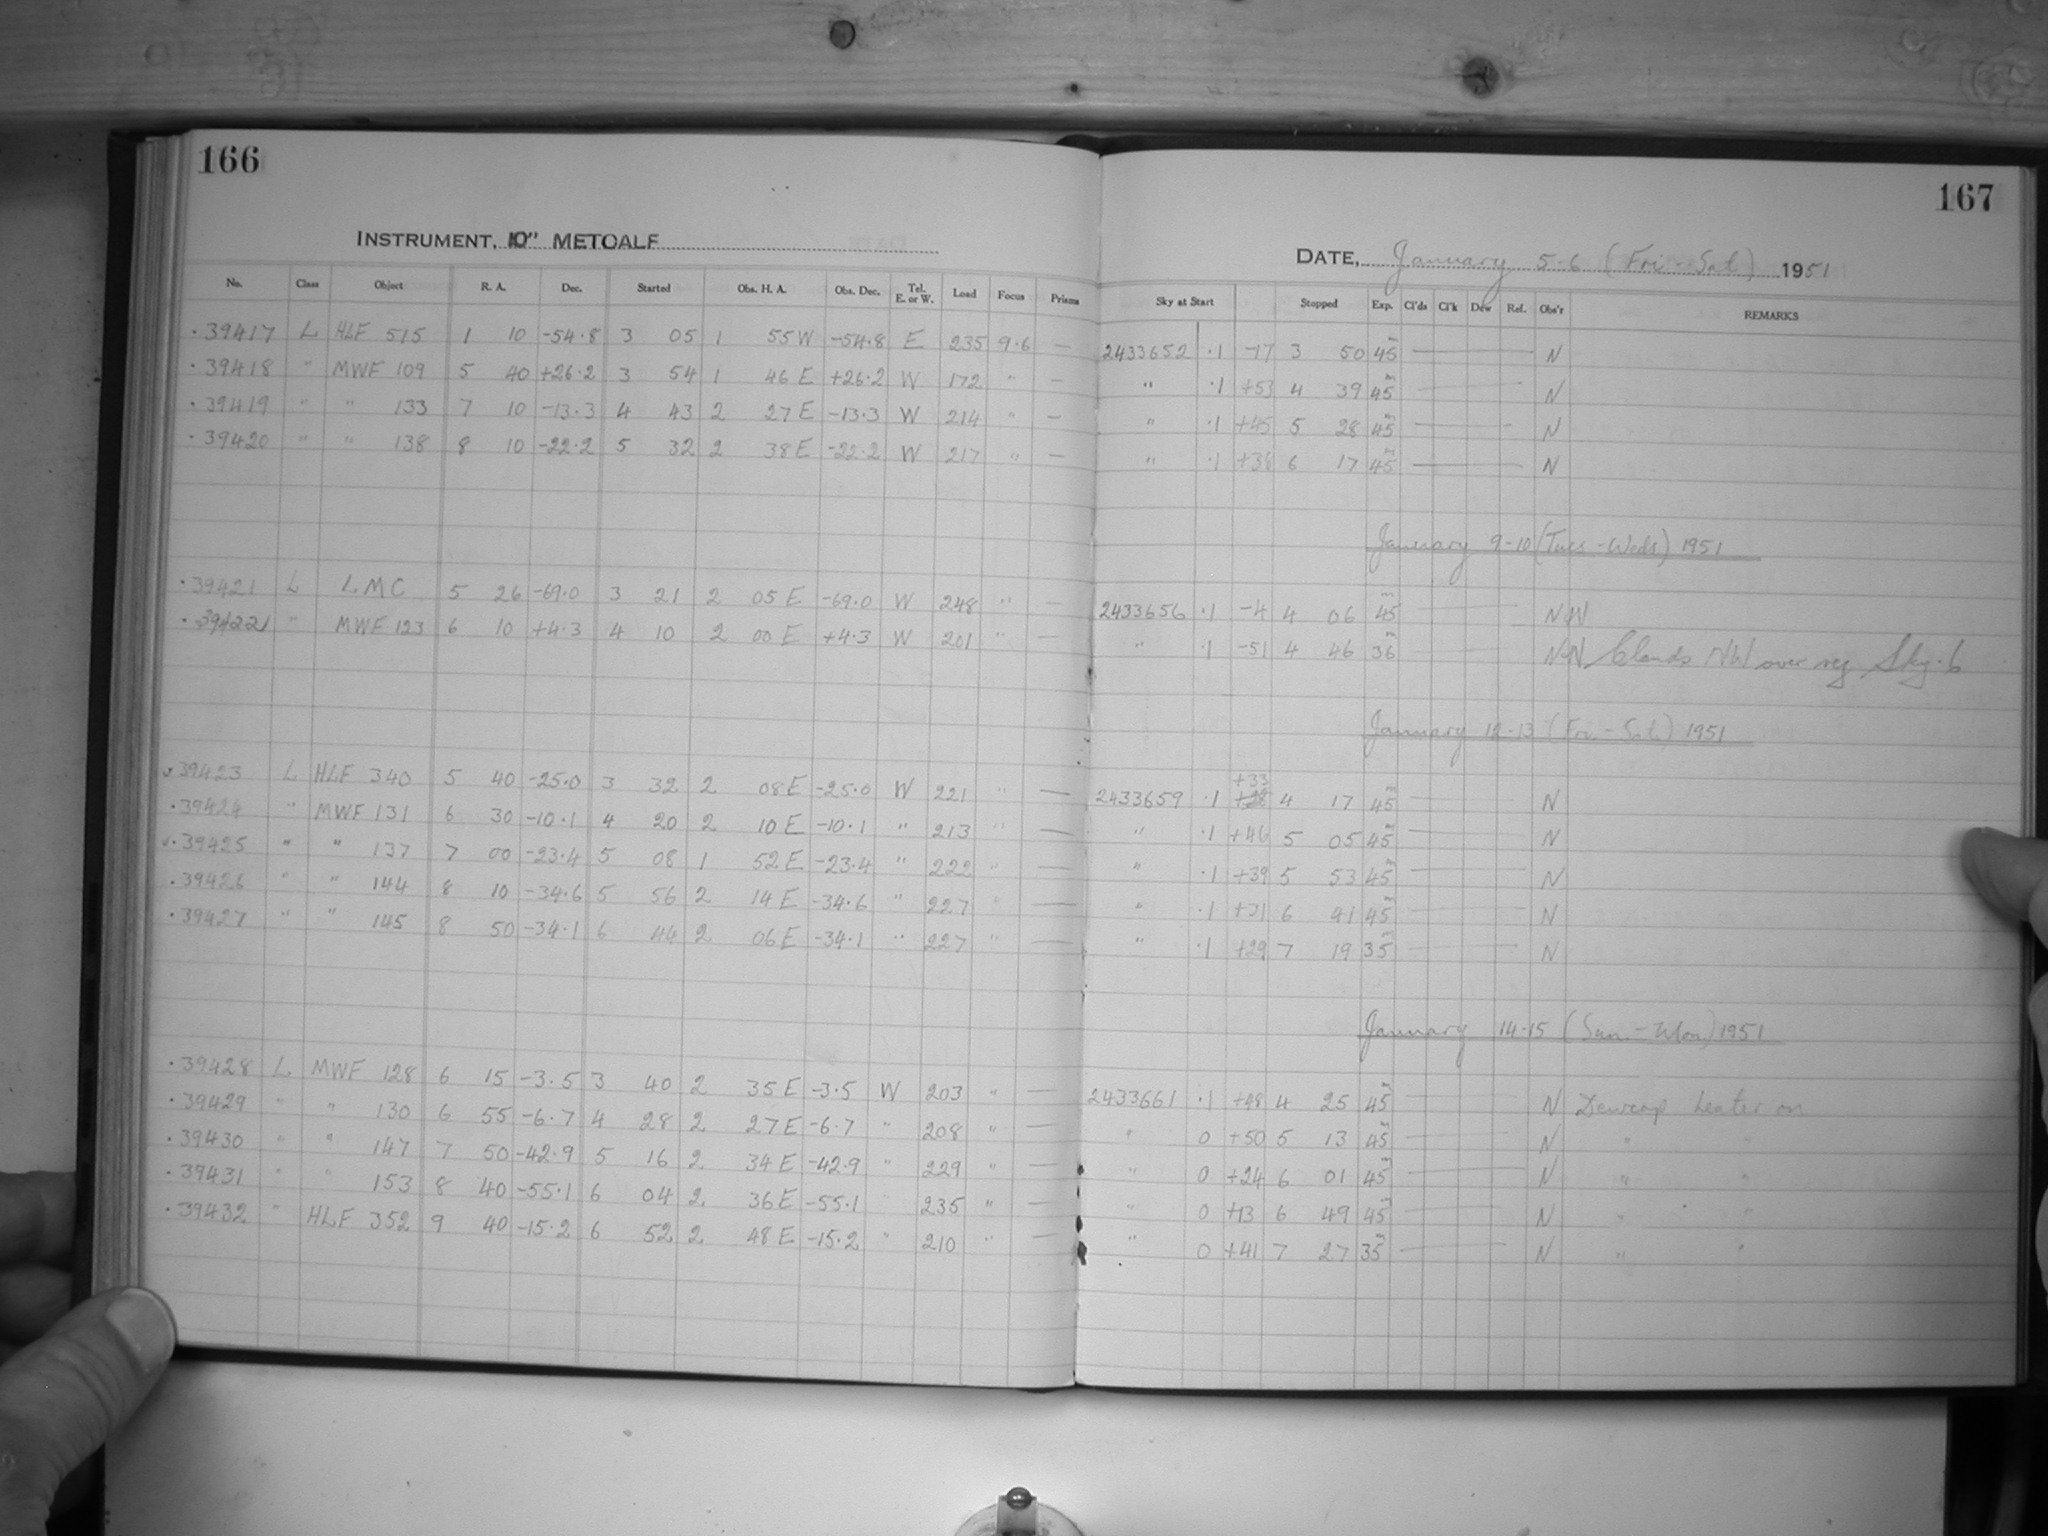 166
INSTRUMENT, 10" METCALF
No. Class Object R. A. Dec. Started Obs. H. A. Obs. Dec. Tel. E. or W. Load Focus Prisms
.39417 L HLF 515 1 10 -54.8 3 05 1 55 W -54.8 E 235 9.6 —
.39418 " MWF 109 5 40 +26.2 3 54 1 46 E +26.2 W 172 " —
.39419 " " 133 7 10 -13.3 4 43 2 27 E -13.3 W 214 " —
.39420 " " 138 8 10 -22.2 5 32 2 38 E -22.2 W 217 " —
.39421 L LMC 5 26 -69.0 3 21 2 05 E -69.0 W 248 " —
.39422 " MWF 123 6 10 +4.3 4 10 2 00 E +4.3 W 201 " —
39423 L HLF 340 5 40 -25.0 3 32 2 08 E -25.0 W 221 " —
.39424 " MWF 131 6 30 -10.1 4 20 2 10 E -10.1 " 213 " —
.39425 " " 137 7 00 -23.4 5 08 1 52 E -23.4 " 222 " —
.39426 " " 144 8 10 -34.6 5 56 2 14 E -34.6 " 227 " —
.39427 " " 145 8 50 -34.1 6 44 2 06 E -34.1 " 227 " —
.39428 L MWF 128 6 15 -3.5 3 40 2 35 E -3.5 W 203 " —
.39429 " " 130 6 55 -6.7 4 28 2 27 E -6.7 " 208 " —
.39430 " " 147 7 50 -42.9 5 16 2 34 E -42.9 " 229 " —
.39431 " " 153 8 40 -55.1 6 04 2 36 E -55.1 " 235 " —
.39432 " HLF 352 9 40 -15.2 6 52 2 48 E -15.2 " 210 " —
167
DATE, January 5-6 (Fri-Sat) 1951
Sky at Start Stopped Exp. Cl'ds Cl'k Dew Ref. Obs'r REMARKS
2433652 .1 -17 3 50 45m — N
" .1 +53 4 39 45m — N
" .1 +45 5 28 45m — N
" .1 6 17 45m — N
January 9-10 (Tues-Weds) 1951
2433656 .1 -4 4 06 45m — N W
" .1 -51 4 46 36m N N Clouds NW over reg Sky .6
January 12-13 (Fri-Sat) 1951
+33
2433659 .1 +28 4 17 45m — N
" .1 +46 5 05 45m — N
" .1 +39 5 53 45m — N
" .1 +31 6 41 45m — N
" .1 +29 7 19 35m — N
January 14-15 (Sun-Mon) 1951
2433661 .1 +48 4 25 45m — N Dewcap heater on
" 0 +50 5 13 45m — N " "
" 0 +24 6 01 45m — N " "
" 0 +13 6 49 45m — N " "
" 0 +41 7 27 35m — N " "